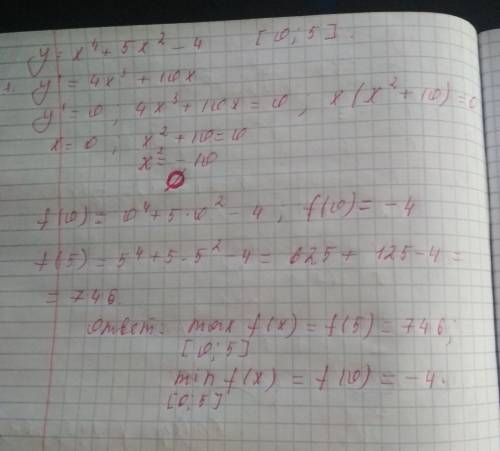 y = x⁴ + 5x² - 4 [0; 5].
1. y' = 4x³ + 10x
y' = 0, 4x³ + 10x = 0; x(x² + 10) = 0
x = 0; x² + 10 = 0
x² = -10
∅
f(0) = 0⁴ + 5·0² - 4; f(0) = -4
f(5) = 5⁴ + 5·5² - 4 = 625 + 125 - 4 =
= 746
Ответ: max f(x) = f(5) = 746;
[0; 5]
min f(x) = f(0) = -4.
[0; 5]